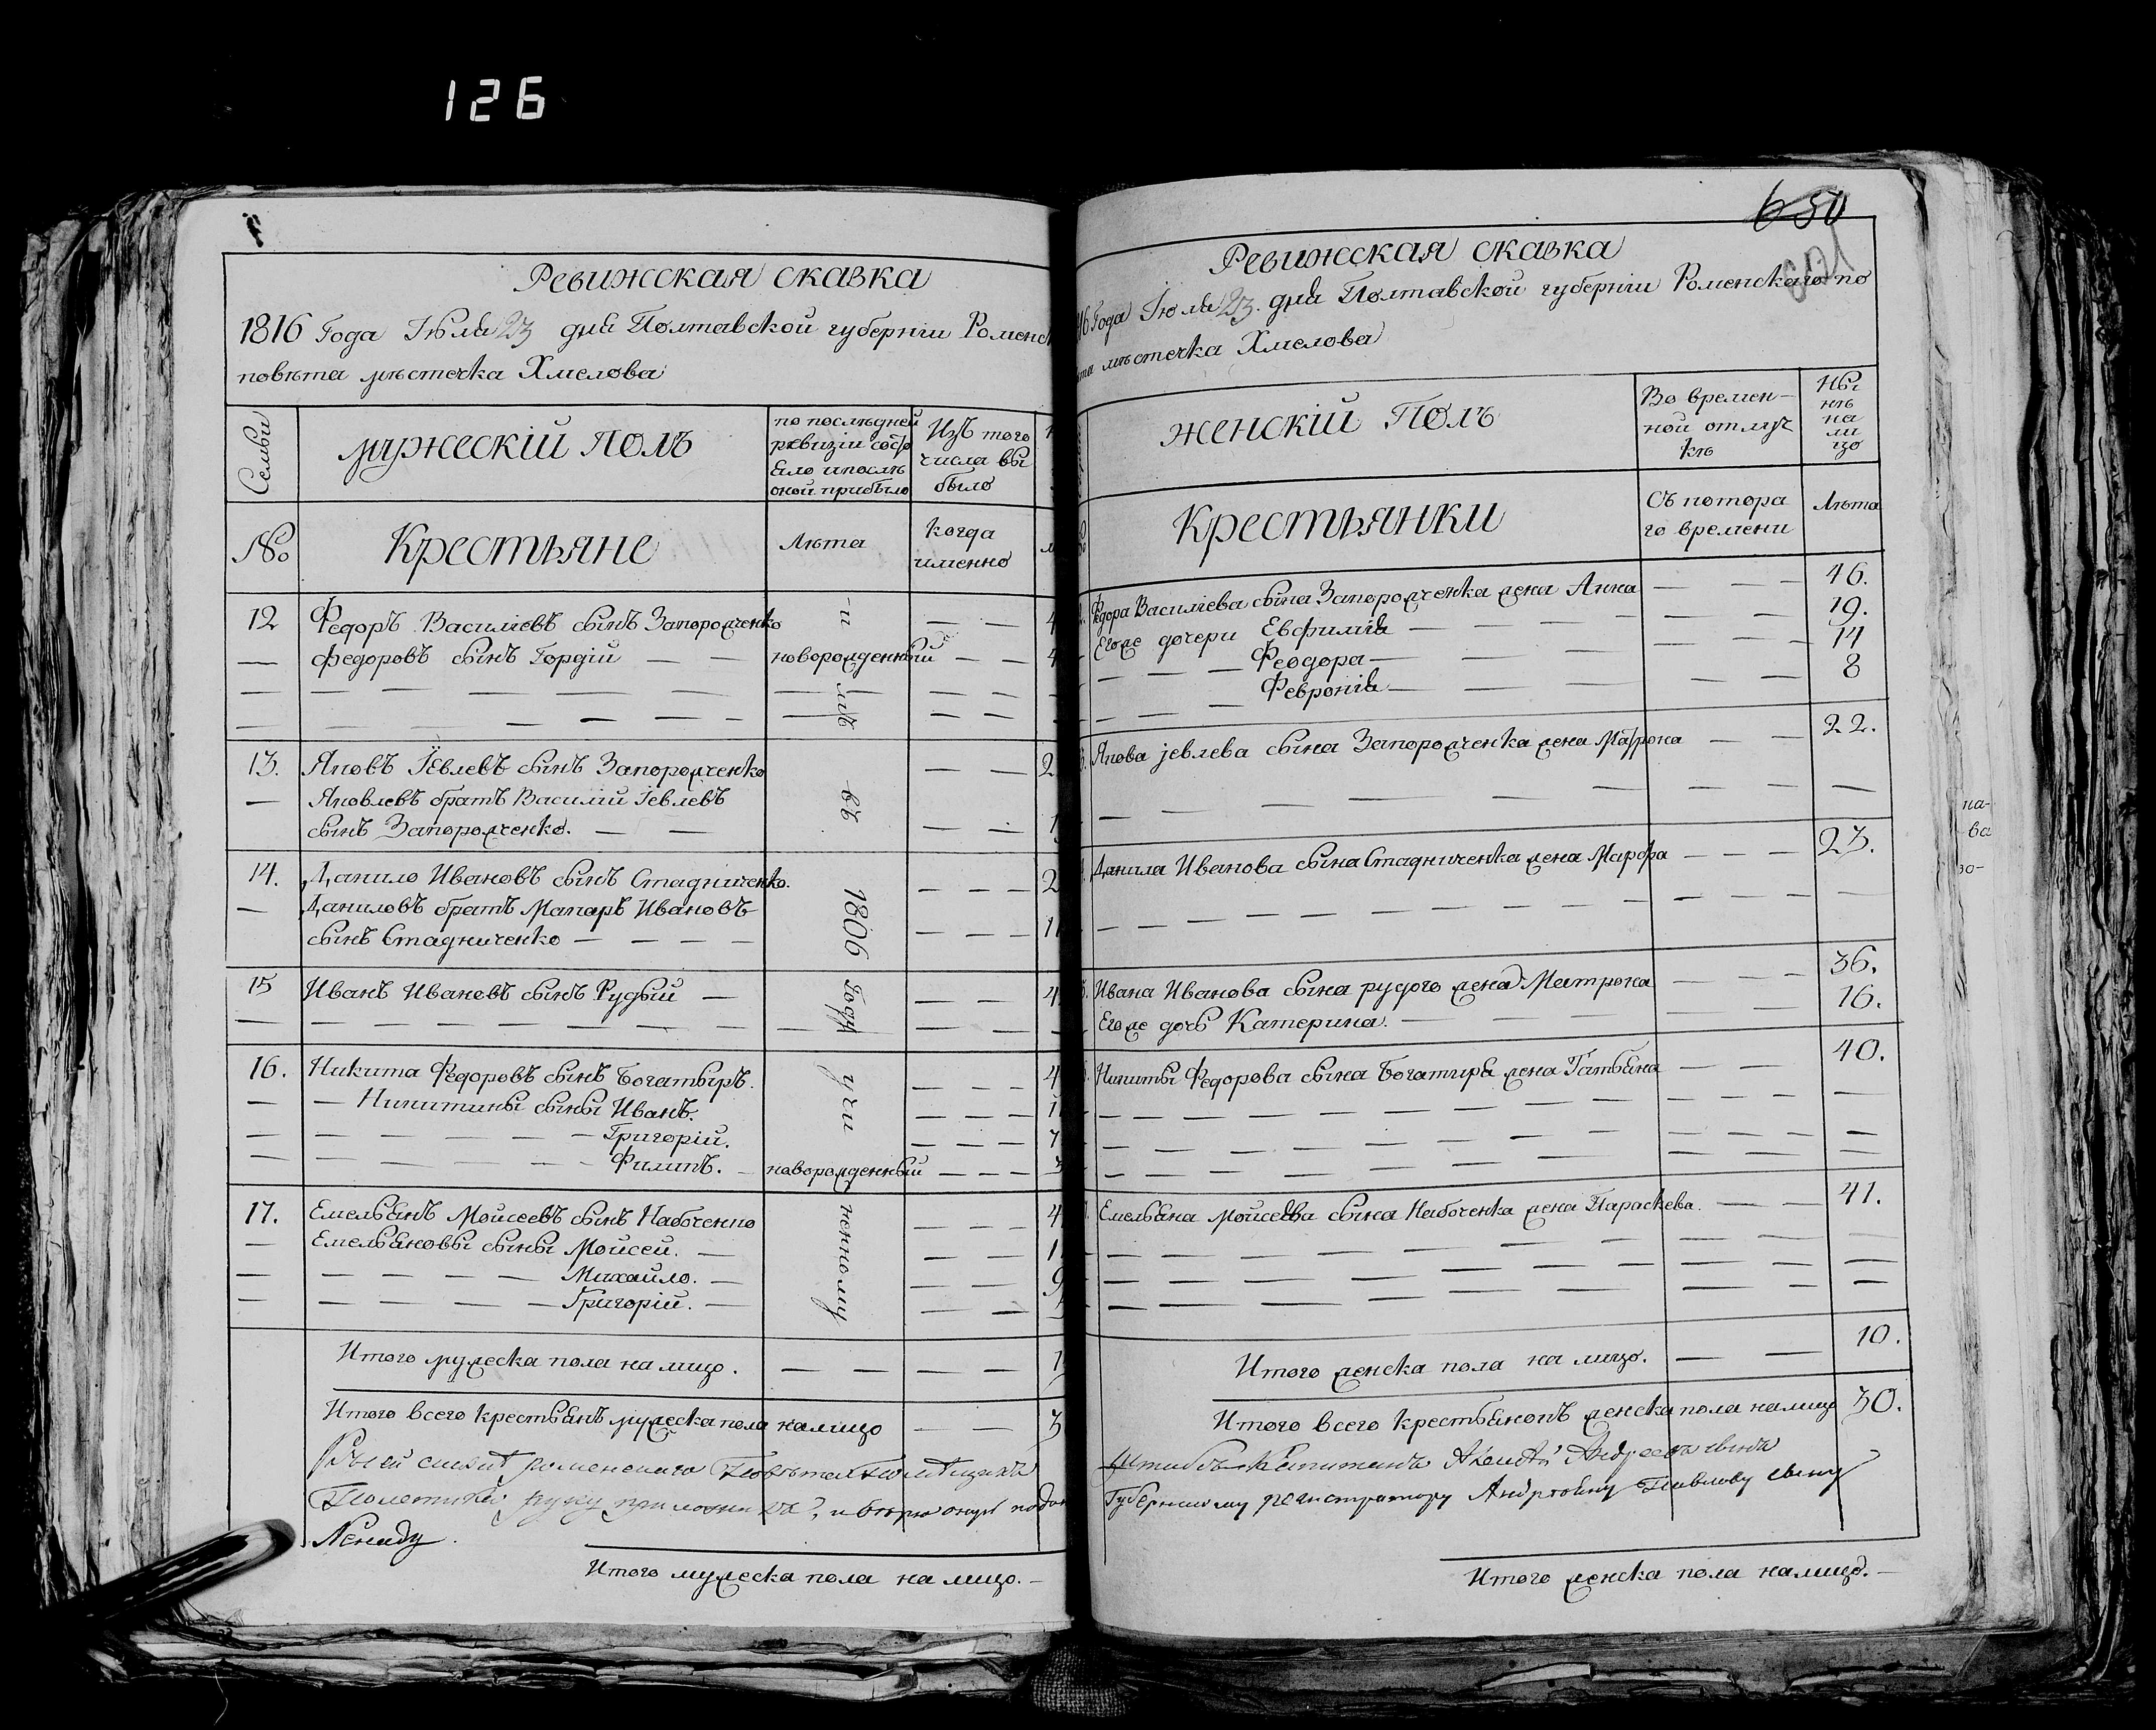 126
Ревижская сказка
1816 Года Июля 23 дня Полтавской губернии Роменск
повѣта мѣстечка Хмелова
Семьи
мужескій полъ
по послѣдней
ревизіи состо
яло и послѣ
оной прибыло
Изъ того
числа вы
было
№
Крестьяне
Лѣта
когда
именно
12 Федоръ Василіевъ сынъ Запорожченко — — 4
— Федоровъ сынъ Гордій — — новорожденный — — 4
13. Яковъ Іевлевъ сынъ Запорожченко — — 2
— Яковлевъ братъ Василій Іевлевъ
сынъ Запорожченко. — — — — 1
14. Данило Ивановъ сынъ Стадниченко. — — — 2
— Даниловъ братъ Макаръ Ивановъ
сынъ Стадниченко — — — — — — — 11
15 Иванъ Ивановъ сынъ Рудый — — — 4
16. Никита Федоровъ сынъ Богатыръ. — — — 4
— — Никитины сыны Иванъ. — — — 1
— — — — — — — Григорій. — — — 7
— — — — — — — Филипъ. — новорожденный — — — 3
17. Емельянъ Мойсеевъ сынъ Набоченко — — — 4
— Емельяновы сыны Мойсей. — — — 1
— — — — — — Михайло. — — — 9
— — — — — — Григорій. — — —
въ
1806
Году
Итого мужеска пола на лицо. — — — — 1
Итого всего крестьянъ мужеска пола налицо — — 3
руку приложилъ, и вѣрю оную подат
Итого мужеска пола на лицо. —
650
Ревижская сказка
16 Года Іюля 23. дня Полтавской губерніи Роменскаго по
та мѣстечка Хмелова
женскій Полъ
Во времен-
ной отлуч
кѣ
Ны
нѣ
на
ли
цо
Крестьянки
Съ котора
го времени
Лѣта
Федора Василіева сына Запорожченка жена Анна — — — 46.
Егоже дочери Евфимія — — — — — 19.
— — — — Феодора — — — — — 14
— — — — Февронія — — — — — 8
Якова Іевлева сына Запорожченка жена Матрона — — 22.
Данила Иванова сына Стадниченка жена Марфа — — — 23.
Ивана Иванова сына рудого жена Матрона — — 36.
Егоже дочь Катерина. — — — — — 16.
Никиты Федорова сына Богатиря жена Татьяна — — 40.
Емельяна Мойсеева сына Набоченка жена Параскева. — — 41.
Итого женска пола на лицо. — — 10.
Итого всего крестьянокъ женска пола налицо 30.
Губернскому регистратору Павлову сыну
Итого женска пола налицо. —